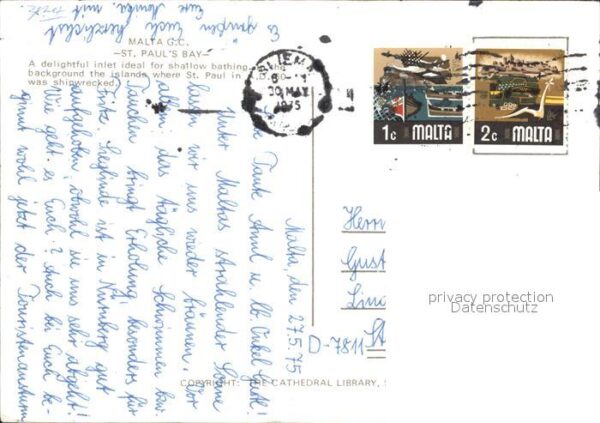 MALTA G.C.
—ST. PAUL'S BAY—
A delightful inlet ideal for shallow bathing. In the
background the islands where St. Paul in A.D.60
was shipwrecked.
30 MAY
1975
1c MALTA
2c MALTA
Malta, den 27.5.75
Liebe Tante Anni u. lb. Onkel Gustl!
Unter Maltas strahlender Sonne
lassen wir uns wieder bräunen. Vor
allem das tägliche Schwimmen bzw.
Tauchen bringt Erholung besonders für
Fritz. Sieglinde ist in Nürnberg gut
aufgehoben, obwohl sie uns sehr abgeht!
Wie geht es Euch? Auch bei Euch be-
ginnt wohl jetzt der Touristenansturm.
Es grüßen Euch herzlichst
Eure Monika mit
Fritz
Herrn
Gust
Lind
D-7811 St
privacy protection
Datenschutz
COPYRIGHT: THE CATHEDRAL LIBRARY,